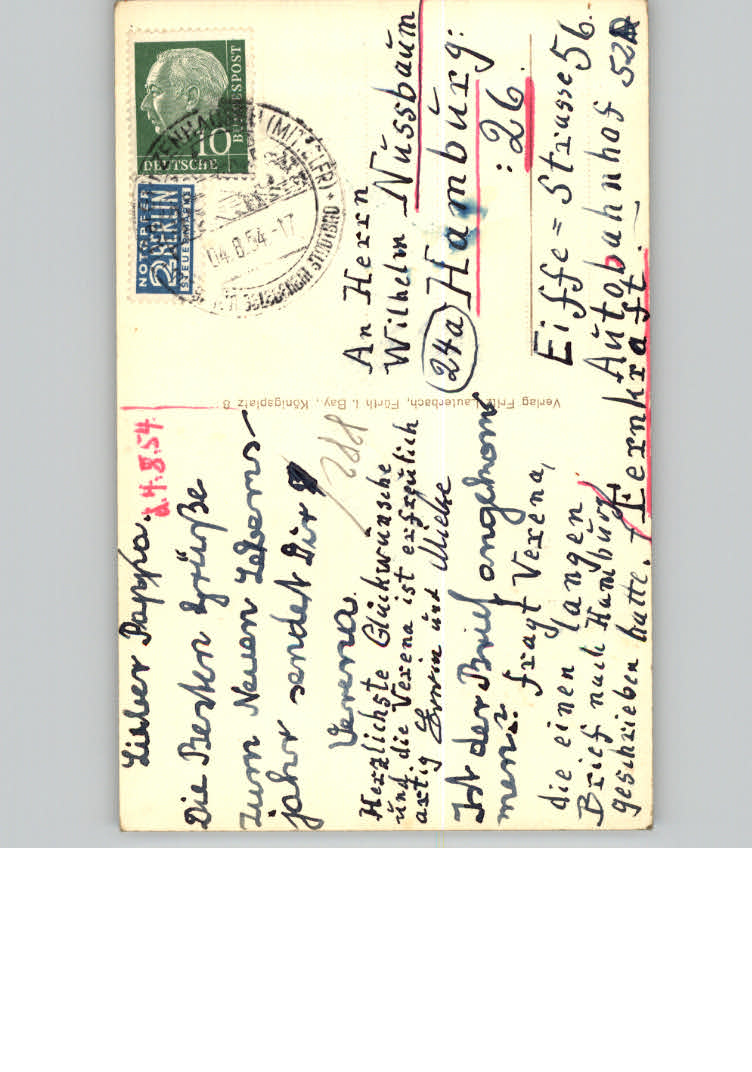 Lieber Pappa.
d. 4.8.54.
Die Besten Grüße
zum Neuen Lebens-
jahr sendet Dir
Verena.
Herzlichste Glückwünsche
und die Verena ist erfreulich
artig Erwin und Miele
Ist der Brief angekom
men? fragt Verena,
die einen langen
Brief nach Hamburg
geschrieben hatte.
188
Verlag Fritz Lauterbach, Fürth i. Bay., Königsplatz 8
DEUTSCHE BUNDESPOST
10
NOTOPFER
2 BERLIN
STEUERMARKE
(MITTELFR)
04.8.54.-17
An Herrn
Wilhelm Nussbaum
24a Hamburg:
:26.
Eiffe=Strasse 56.
Autobahnhof 52
Fernkraft.